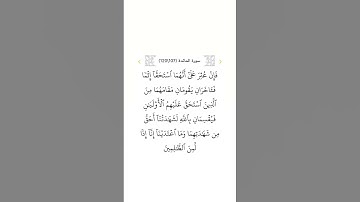 سورة المائدة (120/107)
فَإِنْ عُثِرَ عَلَىٰٓ أَنَّهُمَا ٱسْتَحَقَّآ إِثْمًا
فَـَٔاخَرَانِ يَقُومَانِ مَقَامَهُمَا مِنَ
ٱلَّذِينَ ٱسْتَحَقَّ عَلَيْهِمُ ٱلْأَوْلَيَـٰنِ
فَيُقْسِمَانِ بِٱللَّهِ لَشَهَـٰدَتُنَآ أَحَقُّ
مِن شَهَـٰدَتِهِمَا وَمَا ٱعْتَدَيْنَآ إِنَّآ إِذًا
لَّمِنَ ٱلظَّـٰلِمِينَ